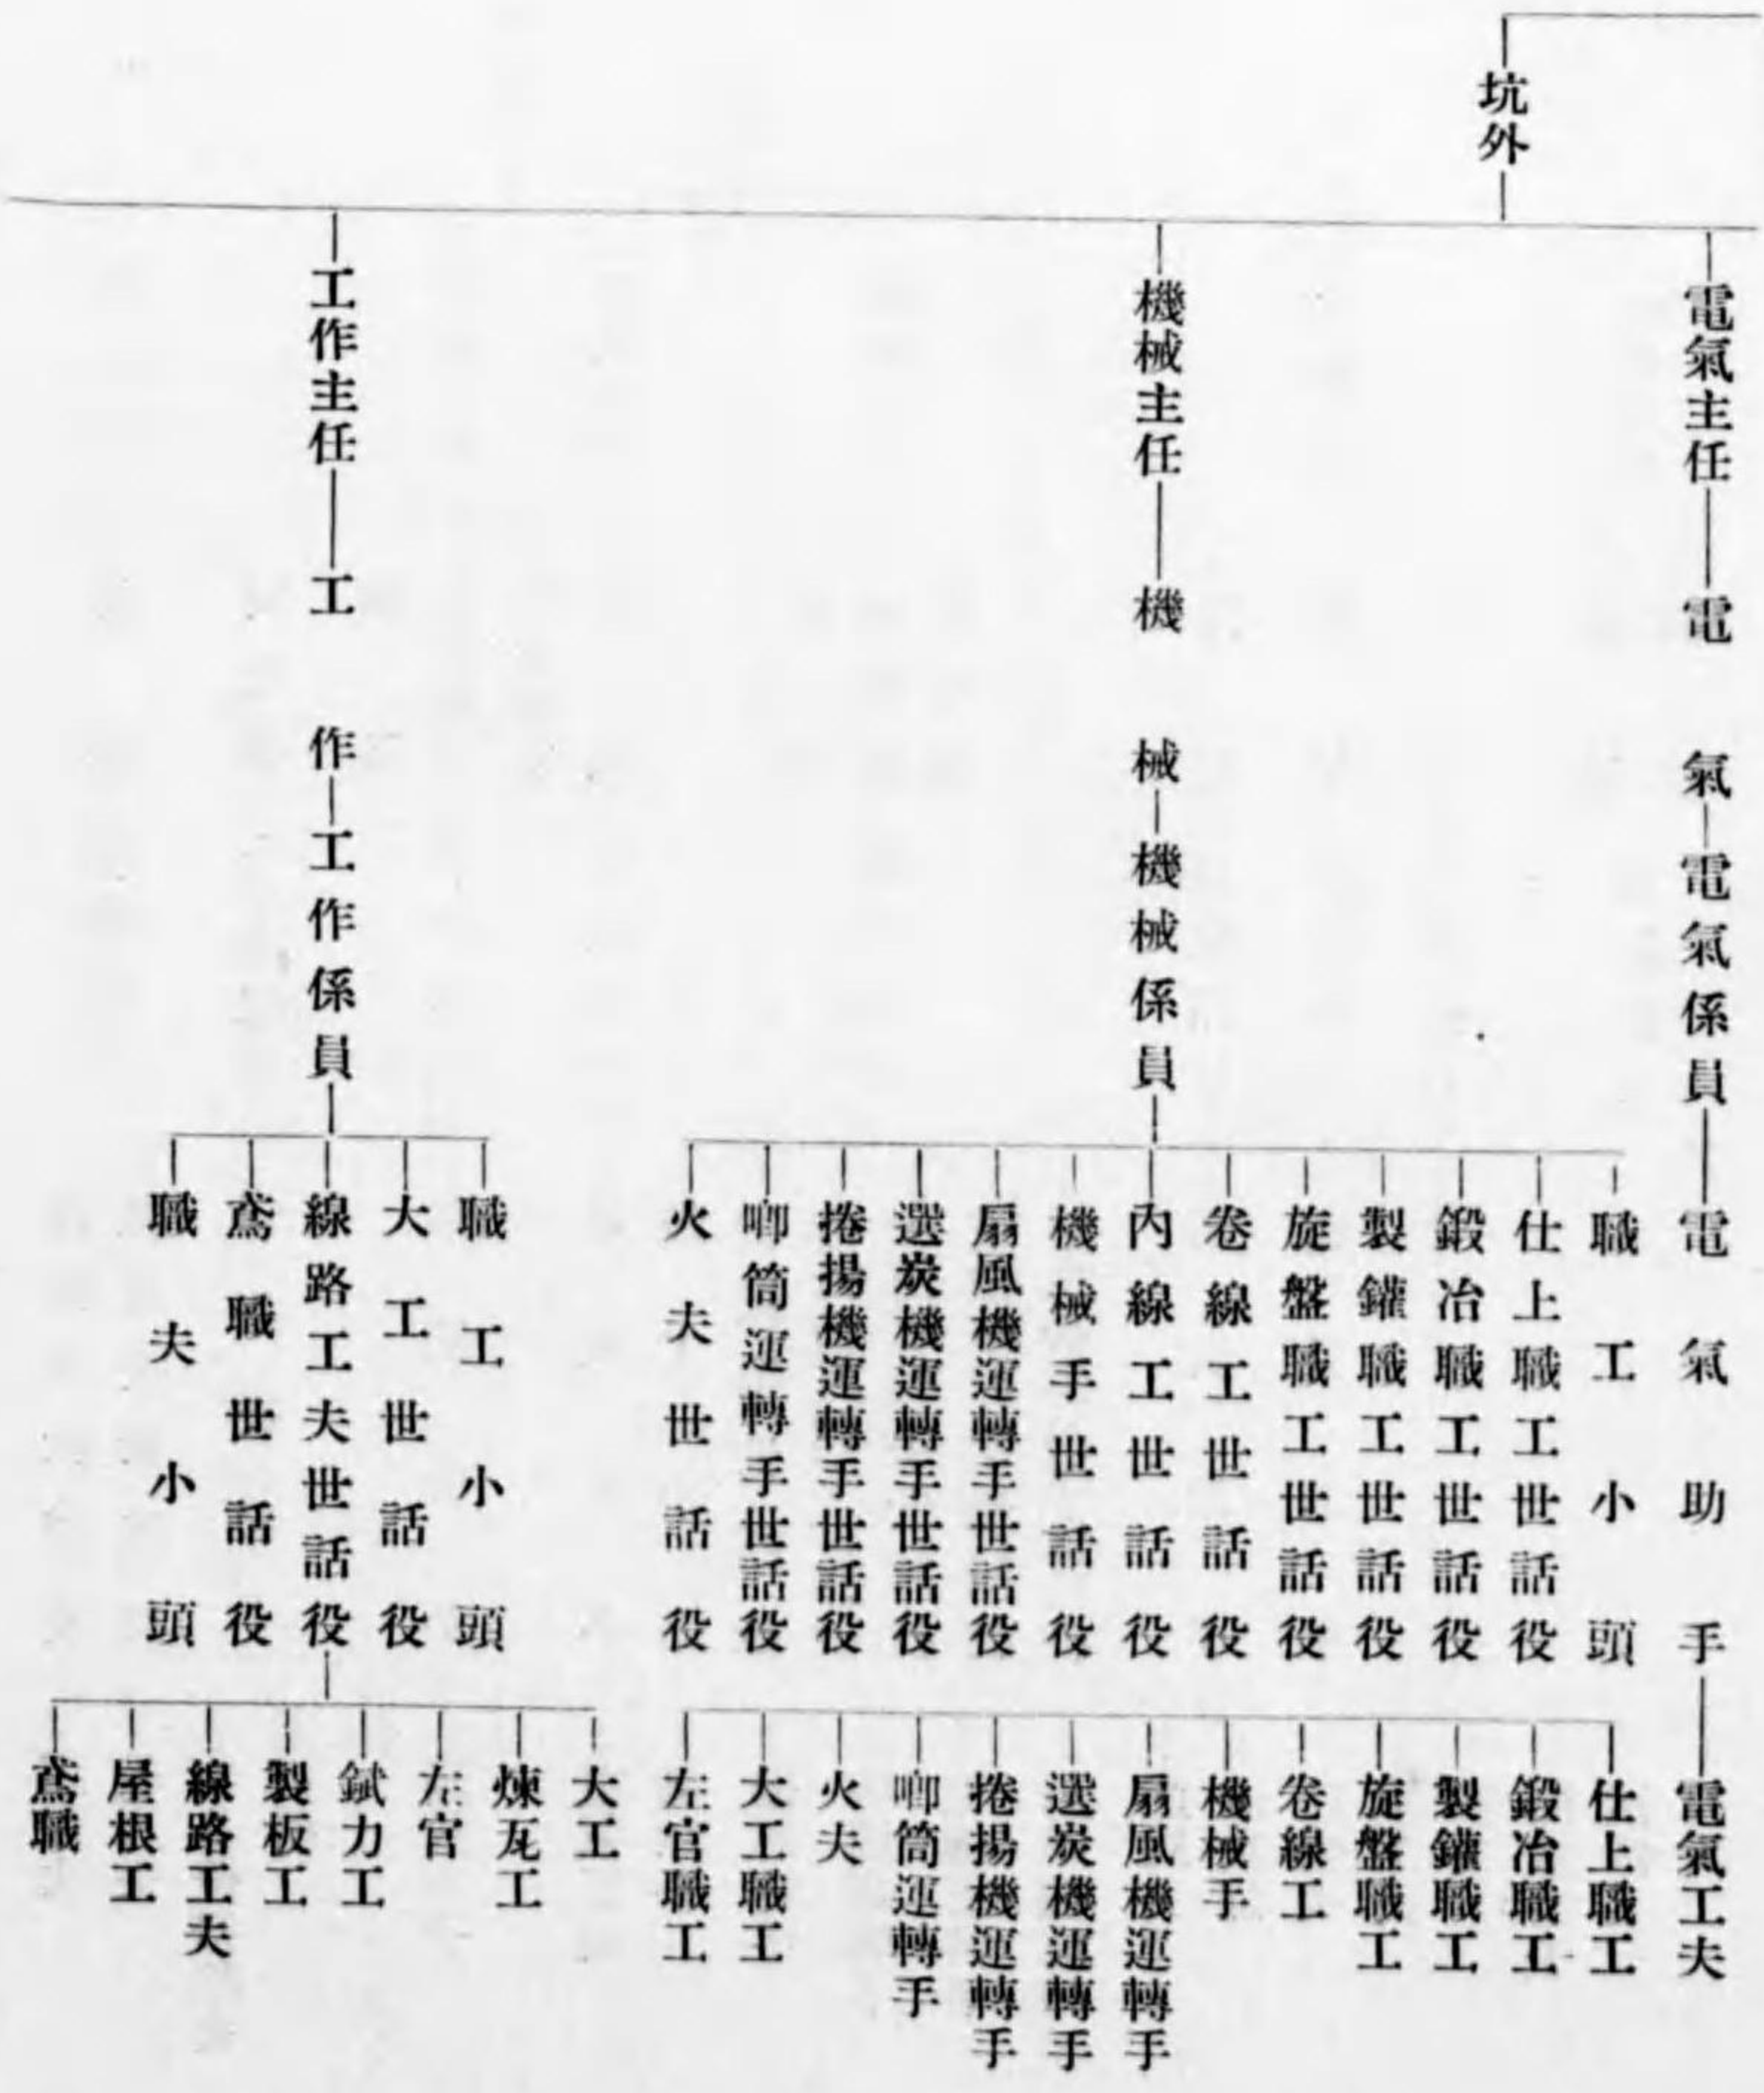 坑外
電氣主任
電氣
電氣係員
電氣助手
電氣工夫
機械主任
機械
機械係員
職工小頭
仕上職工世話役
鍛冶職工世話役
製鑵職工世話役
旋盤職工世話役
卷線工世話役
內線工世話役
機械手世話役
扇風機運轉手世話役
選炭機運轉手世話役
捲揚機運轉手世話役
喞筒運轉手世話役
火夫世話役
仕上職工
鍛冶職工
製鑵職工
旋盤職工
卷線工
機械手
扇風機運轉手
選炭機運轉手
捲揚機運轉手
喞筒運轉手
火夫
大工職工
左官職工
工作主任
工作
工作係員
職工小頭
大工世話役
線路工夫世話役
鳶職世話役
職夫小頭
大工
煉瓦工
左官
錻力工
製板工
線路工夫
屋根工
鳶職